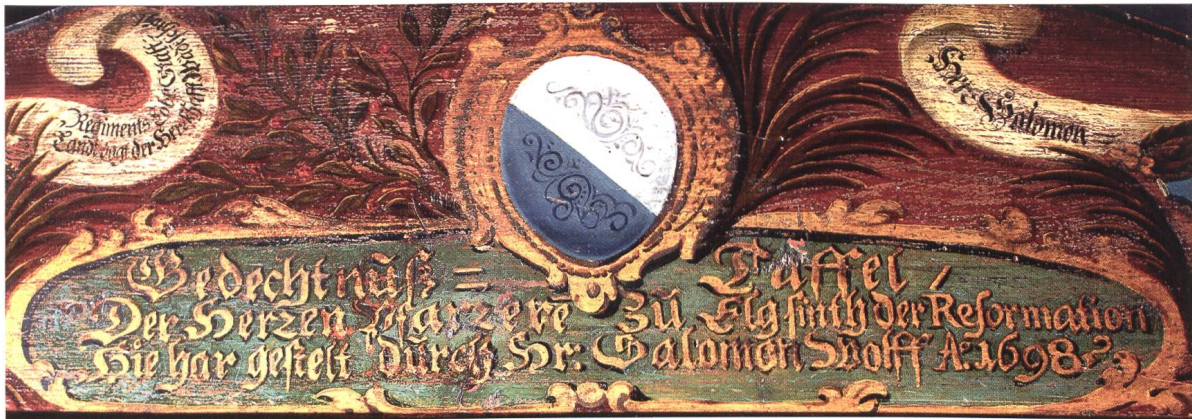 Regiments
Landvogt der Herschafft
Hr: Salomon
Gedechtnüß = Taffel /
Der Herren Pfarrerē Zů Elg sinth der Reformation
Hie har gestelt durch Hr: Salomon Wolff A: 1698